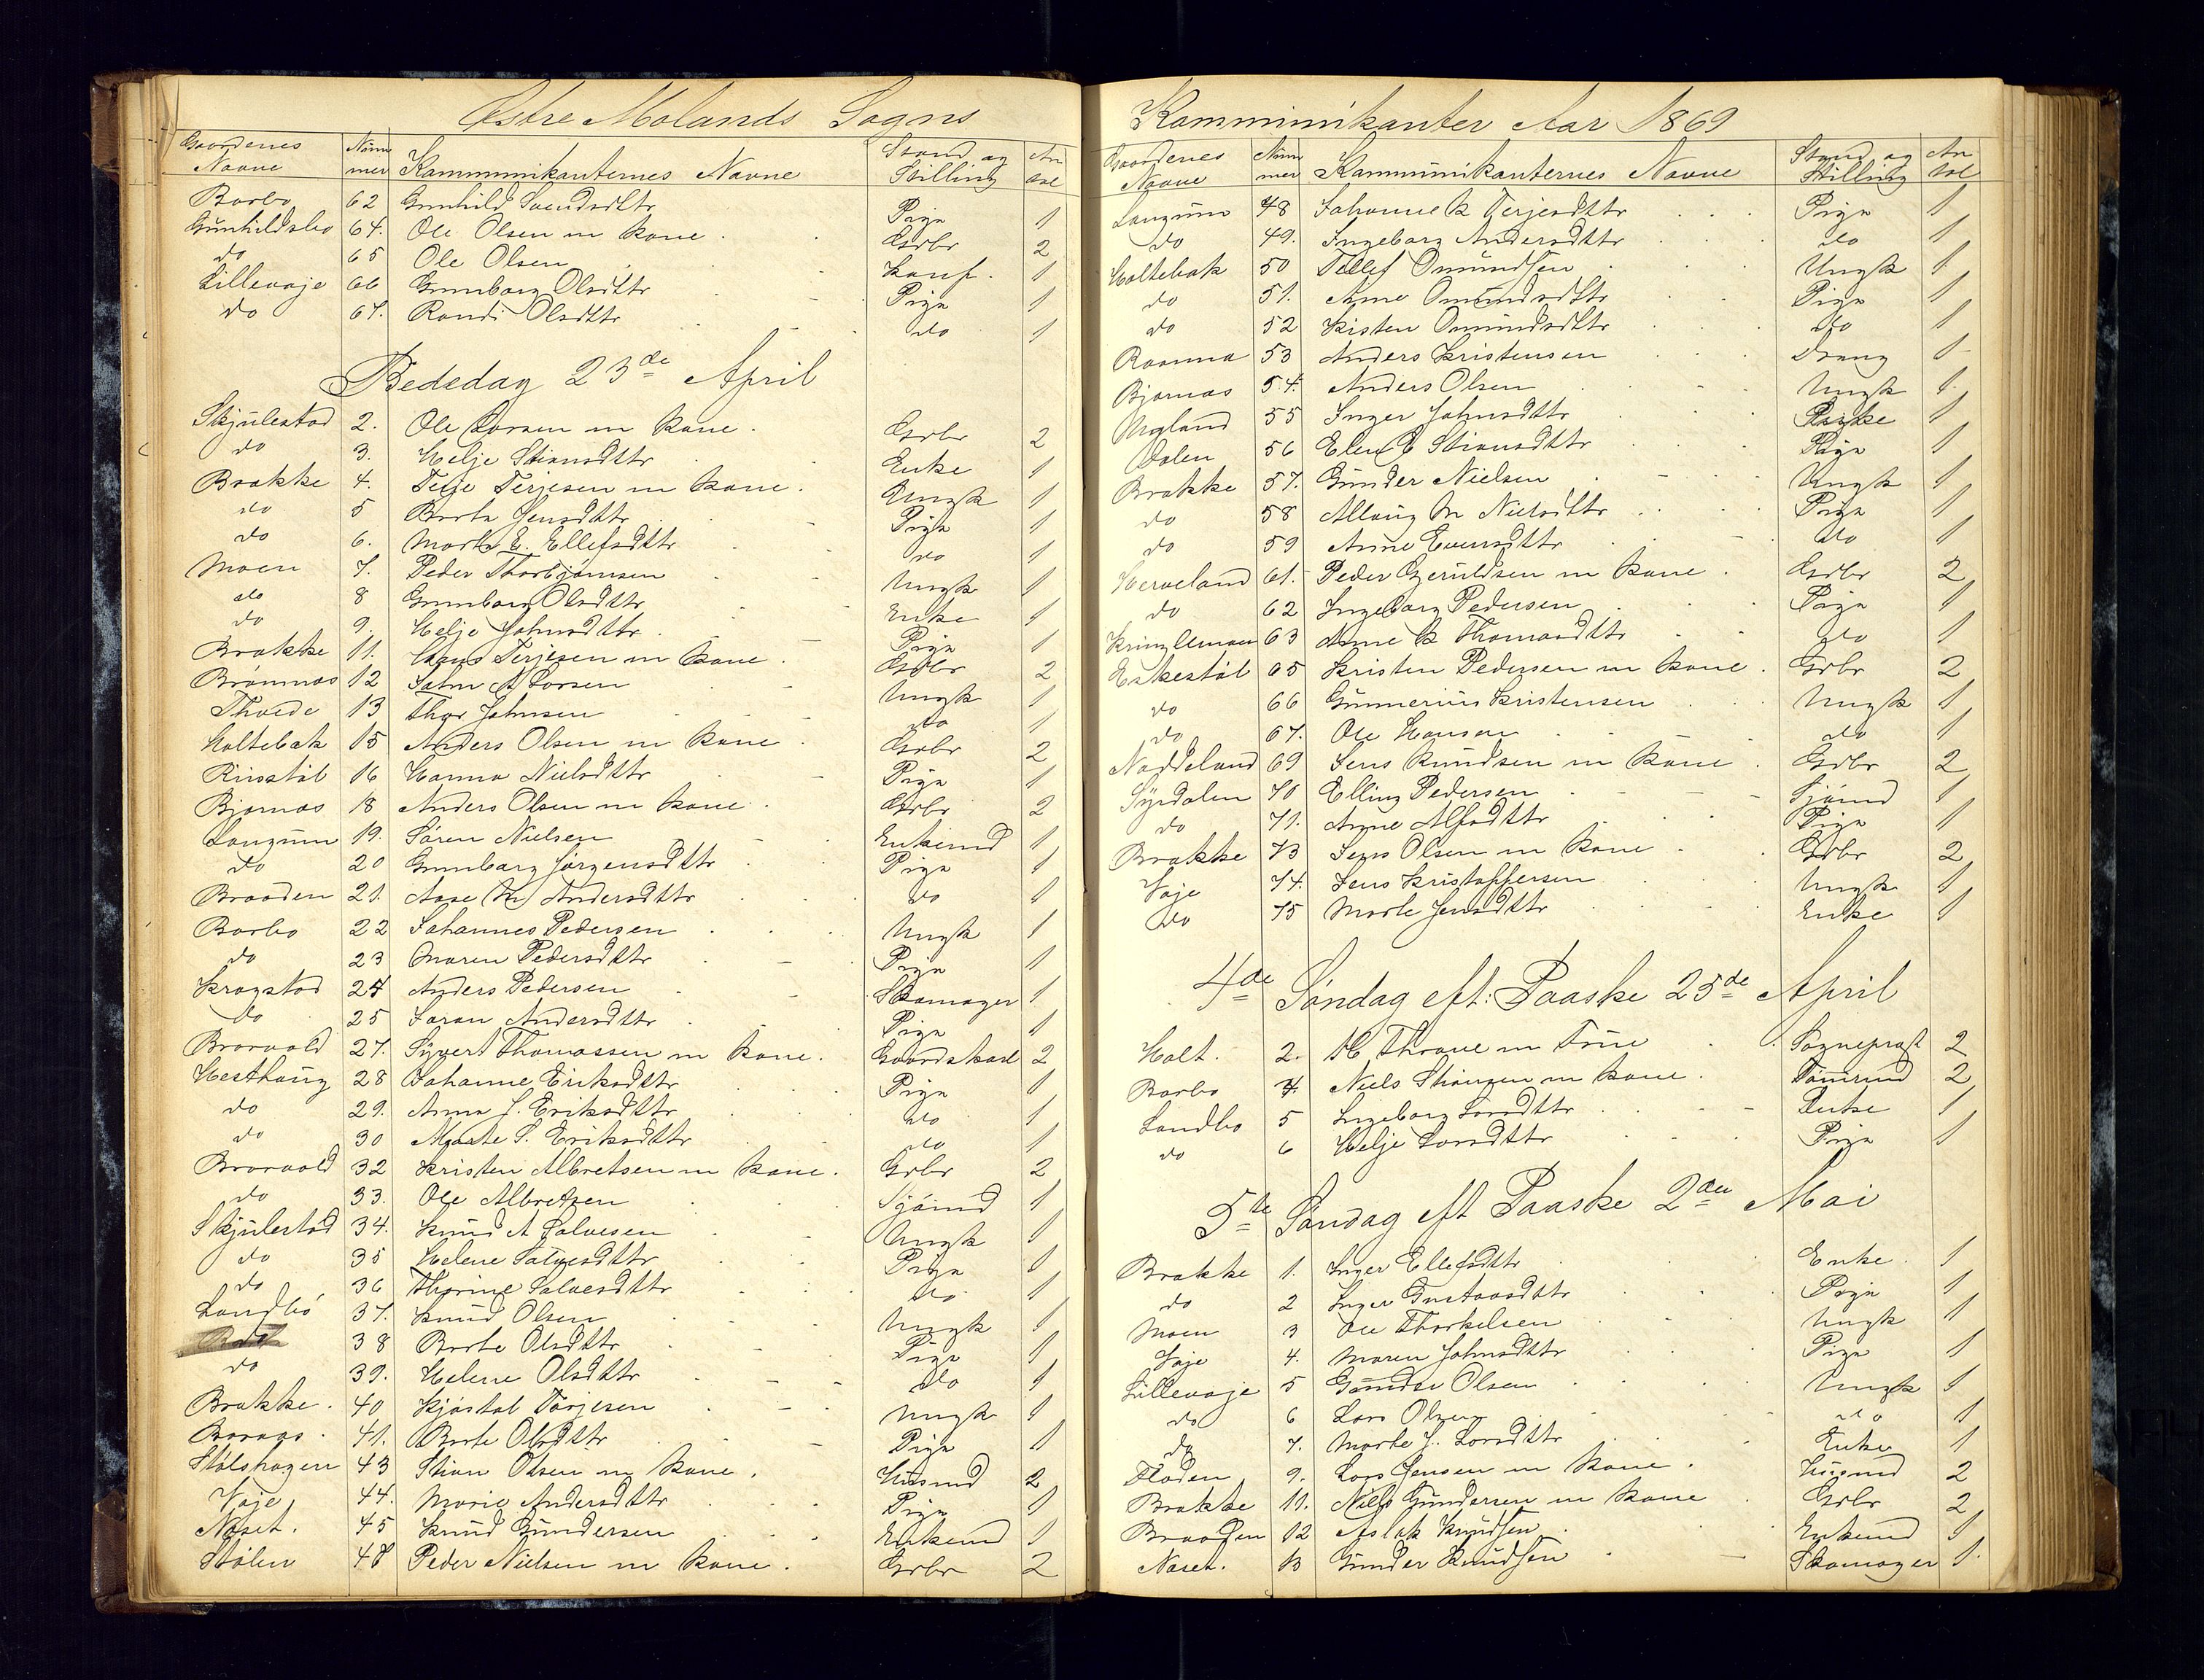 Østre Molands Sogns
Gaardenes Navne Num mer Kommunikanternes Navne Stand og Stilling An tal
Barbo 62 Gunhild Svendsdttr Pige 1
Gunhildsbo 64. Ole Olsen m kone Grbr 2
do 65 Ole Olsen Konf. 1
Lillevaje 66 Gunborg Olsdttr Pige 1
do 67. Randi Olsdttr do 1
Bededag 23de April
Skjulestad 2. Ole Larsen m kone. Grbr 2
do 3. Helje Stiansdttr Enke 1
Brække 4. Terje Terjesen m kone. Ungk 1
do 5 Berte Jensdttr Pige 1
do 6. Marte E. Ellefsdttr do 1
Moen 7. Peder Thorbjørnsen Ungk 1
do 8 Gunborg Olsdttr Enke 1
do 9. Helje Johnsdttr Pige 1
Brække 11. Terjesen m kone. Grbr 2
Brømnes 12 John A Larsen Ungk 1
Thvede 13 Thor Johnsen do 1
Holtebæk 15 Anders Olsen m kone Grbr 2
16 Hanna Nielsdttr Pige 1
Bjørnaas 18 Anders Olsen m kone. Grbr 2
Langum 19. Søren Nielsen Enkemd 1
do 20 Gunborg Jørgensdttr Pige 1
Braaden 21. Aase M Andersdttr do 1
Barbo 22 Johannes Pedersen Ungk 1
do 23 Maren Pedersdttr Pige 1
Kragstad 24 Anders Pedersen Skomager 1
do 25 Andersdttr Pige 1
Brovold 27. Syvert Thomassen m kone. Gaardskarl 2
Hesthaug 28 Johanne Eriksdttr Pige 1
do 29. Anna J. Eriksdttr do 1
do 30 Marte S. Eriksdttr do 1
Brovold 32 Kristen Albretsen m kone. Grbr 2
do 33. Ole Albretsen Sjømd 1
Skjulestad 34. Knud A Salvesen Ungk 1
do 35 Helene Salvesdttr Pige 1
do 36 Thorine Salvesdttr do 1
Landbø 37. Knud Olsen Ungk 1
do 38 Berte Olsdttr Pige 1
do 39. Helene Olsdttr do 1
Brække. 40 Kjøstol Tørjesen Ungk 1
41. Berte Olsdttr Pige 1
Stølshagen 43 Stian Olsen m kone. Husmd 2
Vaje 44. Marie Andersdttr Pige 1
Næset. 45 Knud Gundersen Enkemd 1
Stølen 48 Peder Nielsen m kone. Grbr 2
Kommunikanter Aar 1869
Gaardenes Navne Num mer Kommunikanternes Navne Stand og Stilling An tal
Langum 48 Johanne K Terjesdttr Pige 1
do 49. Ingeborg Andersdttr do 1
Holtebæk 50 Tellef Omundsen Ungk 1
do 51. Anne Omundsdttr Pige 1
do 52 Kisten Omundsdttr do 1
53 Anders Kristensen Dreng 1
Bjørnaas 54. Anders Olsen Ungk 1
Myland 55 Inger Johnsdttr 1
Dalen 56 Elen Stiansdttr Pige 1
Brække 57. Gunder Nielsen Ungk 1
do 58 Allaug M Nielsdttr Pige 1
do 59 Anne Evensdttr do 1
Herveland 61. Peder Gjeruldsen m kone. Grbr 2
do 62 Ingeborg Pedersen Pige 1
63 Anne K Thomasdttr do 1
Eskestøl 65 Kristen Pedersen m kone. Grbr 2
do 66 Gunnerius Kristensen Ungk 1
do 67. Ole Hansen do 1
Næddeland 69 Jens Knudsen m kone Grbr 2
Syrdalen 70 Elling Pedersen Sjømd 1
do 71. Anne Alfsdttr Pige 1
Brække 73 Jens Olsen m kone Grbr 2
Vaje 74. Jens Kristoffersen Ungk 1
do 75 Marte Jensdttr Enke 1
4de Søndag eft: Paaske 25de April
Holt. 2. H Thrane m Frue Sogneprest 2
Barbo 4. Niels Stiansen m kone. Tømmermd 2
Landbo 5 Ingeborg Larsdttr Enke 1
do 6 Helje Larsdttr Pige 1
5te Søndag eft Paaske 2den Mai
Brække 1. Inger Ellefsdttr Enke. 1
do 2 Inger Gustavsdttr Pige 1
Moen 3 Ole Thorkelsen Ungk 1
Vaje 4. Maren Johnsdttr Pige 1
Lillevaje 5 Gunder Olsen Ungk 1
do 6 Lars Olsen do 1
do 7. Marte J. Larsdttr Enke 1
Fladen 9. Lars Jensen m kone. Husmd 2
Brække 11. Niels Gundersen m kone Grbr 2
Braaden 12 Aslak Knudsen Enkemd 1
Næset. 13 Gunder Knudsen Skomager 1.